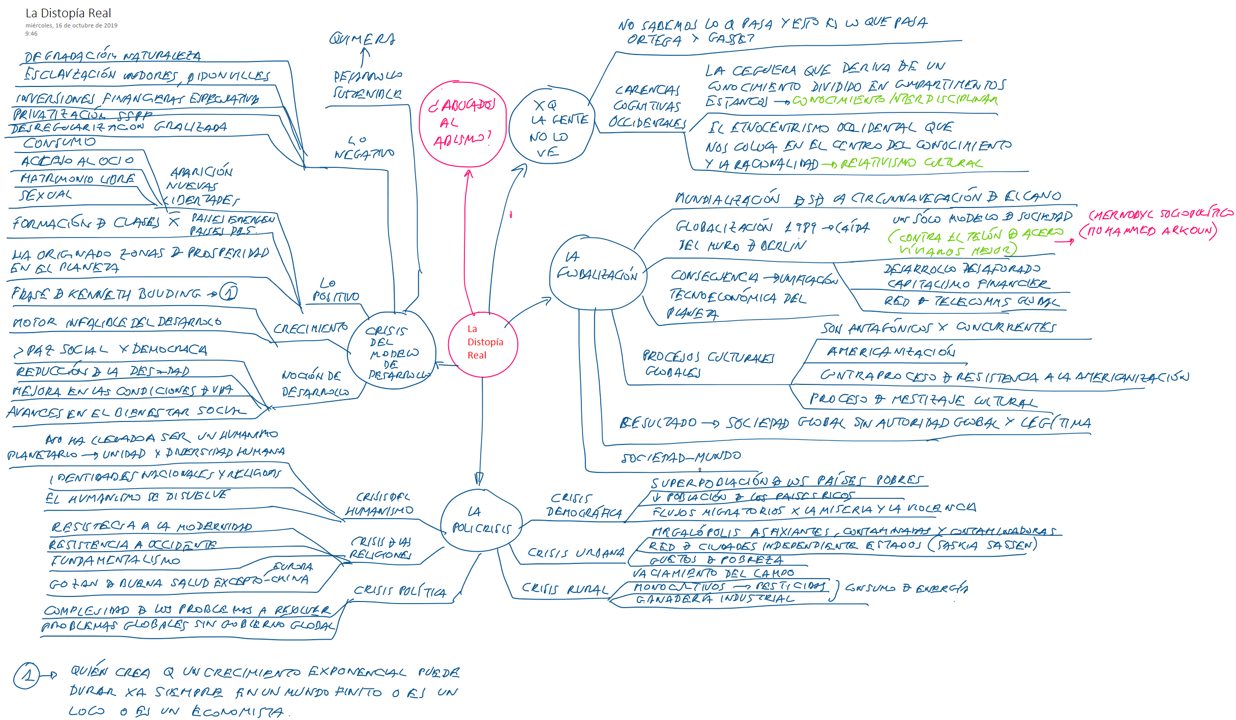 La Distopía Real
miércoles, 16 de octubre de 2019
9:46
La
Distopía
Real
¿ABOCADOS
AL
ABISMO?
XQ
LA GENTE
NO LO
VE
NO SABEMOS LO Q PASA Y ESTO ES LO QUE PASA
ORTEGA Y GASSET
CARENCIAS
COGNITIVAS
OCCIDENTALES
LA CEGUERA QUE DERIVA DE UN
CONOCIMIENTO DIVIDIDO EN COMPARTIMENTOS
ESTANCOS → CONOCIMIENTO INTERDISCIPLINAR
EL ETNOCENTRISMO OCCIDENTAL QUE
NOS COLOCA EN EL CENTRO DEL CONOCIMIENTO
Y LA RACIONALIDAD → RELATIVISMO CULTURAL
LA
GLOBALIZACIÓN
MUNDIALIZACIÓN DSD LA CIRCUNNAVEGACIÓN D ELCANO
GLOBALIZACIÓN 1989 → CAÍDA
DEL MURO D BERLIN
UN SÓLO MODELO D SOCIEDAD
(CONTRA EL TELÓN D ACERO
VIVIAMOS MEJOR)
→ CHERNOBYL SOCIOPOLÍTICO
(MOHAMMED ARKOUN)
CONSECUENCIA → UNIFICACIÓN
TECNOECONÓMICA DEL
PLANETA
DESARROLLO DESAFORADO
CAPITALISMO FINANCIER
RED D TELECOMMS GLOBAL
PROCESOS CULTURALES
GLOBALES
SON ANTAGÓNICOS Y CONCURRENTES
AMERICANIZACIÓN
CONTRAPROCESO D RESISTENCIA A LA AMERICANIZACIÓN
PROCESO D MESTIZAJE CULTURAL
RESULTADO → SOCIEDAD GLOBAL SIN AUTORIDAD GLOBAL Y LEGÍTIMA
SOCIEDAD-MUNDO
CRISIS
DEL
MODELO
DE
DESARROLLO
QUIMERA
DESARROLLO
SUSTENIBLE
LO
NEGATIVO
DEGRADACIÓN NATURALEZA
ESCLAVIZACIÓN
INVERSIONES FINANCIERAS ESPECULATIVAS
PRIVATIZACIÓN SSPP
DESREGULARIZACIÓN GRALIZADA
LO
POSITIVO
APARICIÓN
NUEVAS
LIBERTADES
CONSUMO
ACCESO AL OCIO
MATRIMONIO LIBRE
SEXUAL
FORMACIÓN D CLASES X̅ PAISES EMERGEN
PAISES DES.
HA ORIGINADO ZONAS D PROSPERIDAD
EN EL PLANETA
CRECIMIENTO
FRASE D KENNETH BOUDING → 1
MOTOR INFALIBLE DEL DESARROLLO
NOCIÓN DE
DESARROLLO
> PAZ SOCIAL Y DEMOCRACIA
REDUCCIÓN D LA DES=DAD
MEJORA EN LAS CONDICIONES D VIDA
AVANCES EN EL BIENESTAR SOCIAL
LA
POLICRISIS
CRISIS DEL
HUMANISMO
NO HA LLEGADO A SER UN HUMANISMO
PLANETARIO → UNIDAD Y DIVERSIDAD HUMANA
IDENTIDADES NACIONALES Y RELIGIOSAS
EL HUMANISMO SE DISUELVE
CRISIS D LAS
RELIGIONES
RESISTECIA A LA MODERNIDAD
RESISTENCIA A OCCIDENTE
FUNDAMENTALISMO
GOZAN D BUENA SALUD EXCEPTO EUROPA
CHINA
CRISIS POLÍTICA
COMPLEJIDAD D LOS PROBLEMAS A RESOLVER
PROBLEMAS GLOBALES SIN GOBIERNO GLOBAL
CRISIS
DEMOGRÁFICA
SUPERPOBLACIÓN D LOS PAÍSES POBRES
↓ POBLACIÓN D LOS PAISES RICOS
FLUJOS MIGRATORIOS X LA MISERIA Y LA VIOLENCIA
CRISIS URBANA
MEGALÓPOLIS ASFIXIANTES, CONTAMINADAS Y CONTAMINADORAS
RED D CIUDADES INDEPENDIENTE ESTADOS (SASKIA SASSEN)
GUETOS D POBREZA
CRISIS RURAL
VACIAMIENTO DEL CAMPO
MONOCULTIVOS → PESTICIDAS
GANADERÍA INDUSTRIAL
CONSUMO D ENERGÍA
1 → QUIÉN CREA Q UN CRECIMIENTO EXPONENCIAL PUEDE
DURAR XA SIEMPRE EN UN MUNDO FINITO O ES UN
LOCO O ES UN ECONOMISTA.